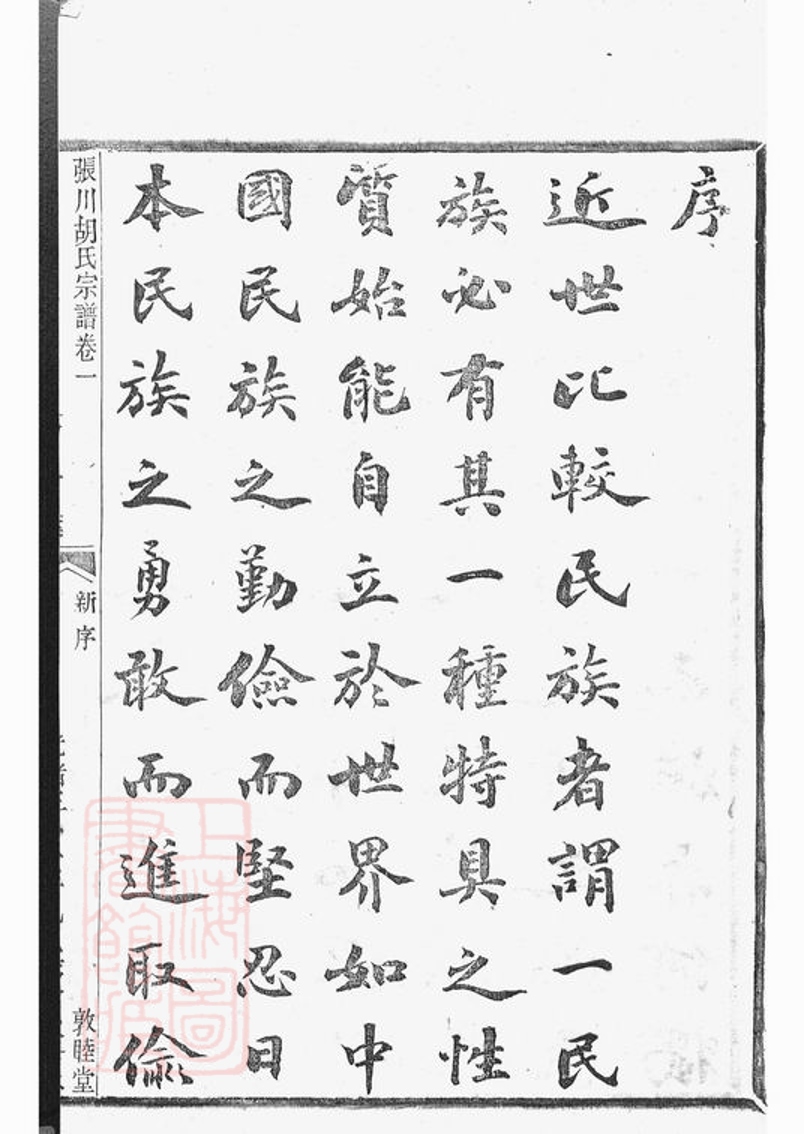 序
近世比較民族者謂一民
族必有其一種特具之性
質始能自立於世界如中
國民族之勤儉而堅忍日
本民族之勇敢而進取儉
張川胡氏宗譜卷一
新序
敦睦堂
上海圖書館藏